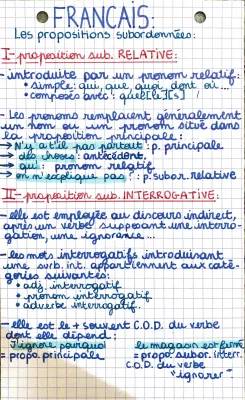 FRANÇAIS:
Les propositions subordonnées:
I-proposition sub. RELATIVE:
-introduite par un pronom relatif.
• simple: qui, que, quoi, dont, où...
• composés avec: quel[le][s]
-Les pronoms remplacent généralement
un nom ou un pronom situé dans
la proposition principale:
→ N'y a t'il pas partout: p. principale
→ des choses: antécédent,
→ qui: pronom relatif
→ on n'explique pas: p. sub. relative
II-proposition sub. INTERROGATIVE:
-elle est employée au discours indirect,
après un verbe supposant une interro-
gation, une ignorance...
-les mots interrogatifs introduisant
une sub. int. appartiennent aux caté-
gories suivantes:
• adj. interrogatif
• pronom interrogatif
• adverbe interrogatif.
-elle est le + souvent C.O.D. du verbe
dont elle dépend:
J'ignore pourquoi le magasin est fermé
= propo. principale = propo. subor. interr.
C.O.D. du verbe
"ignorer"